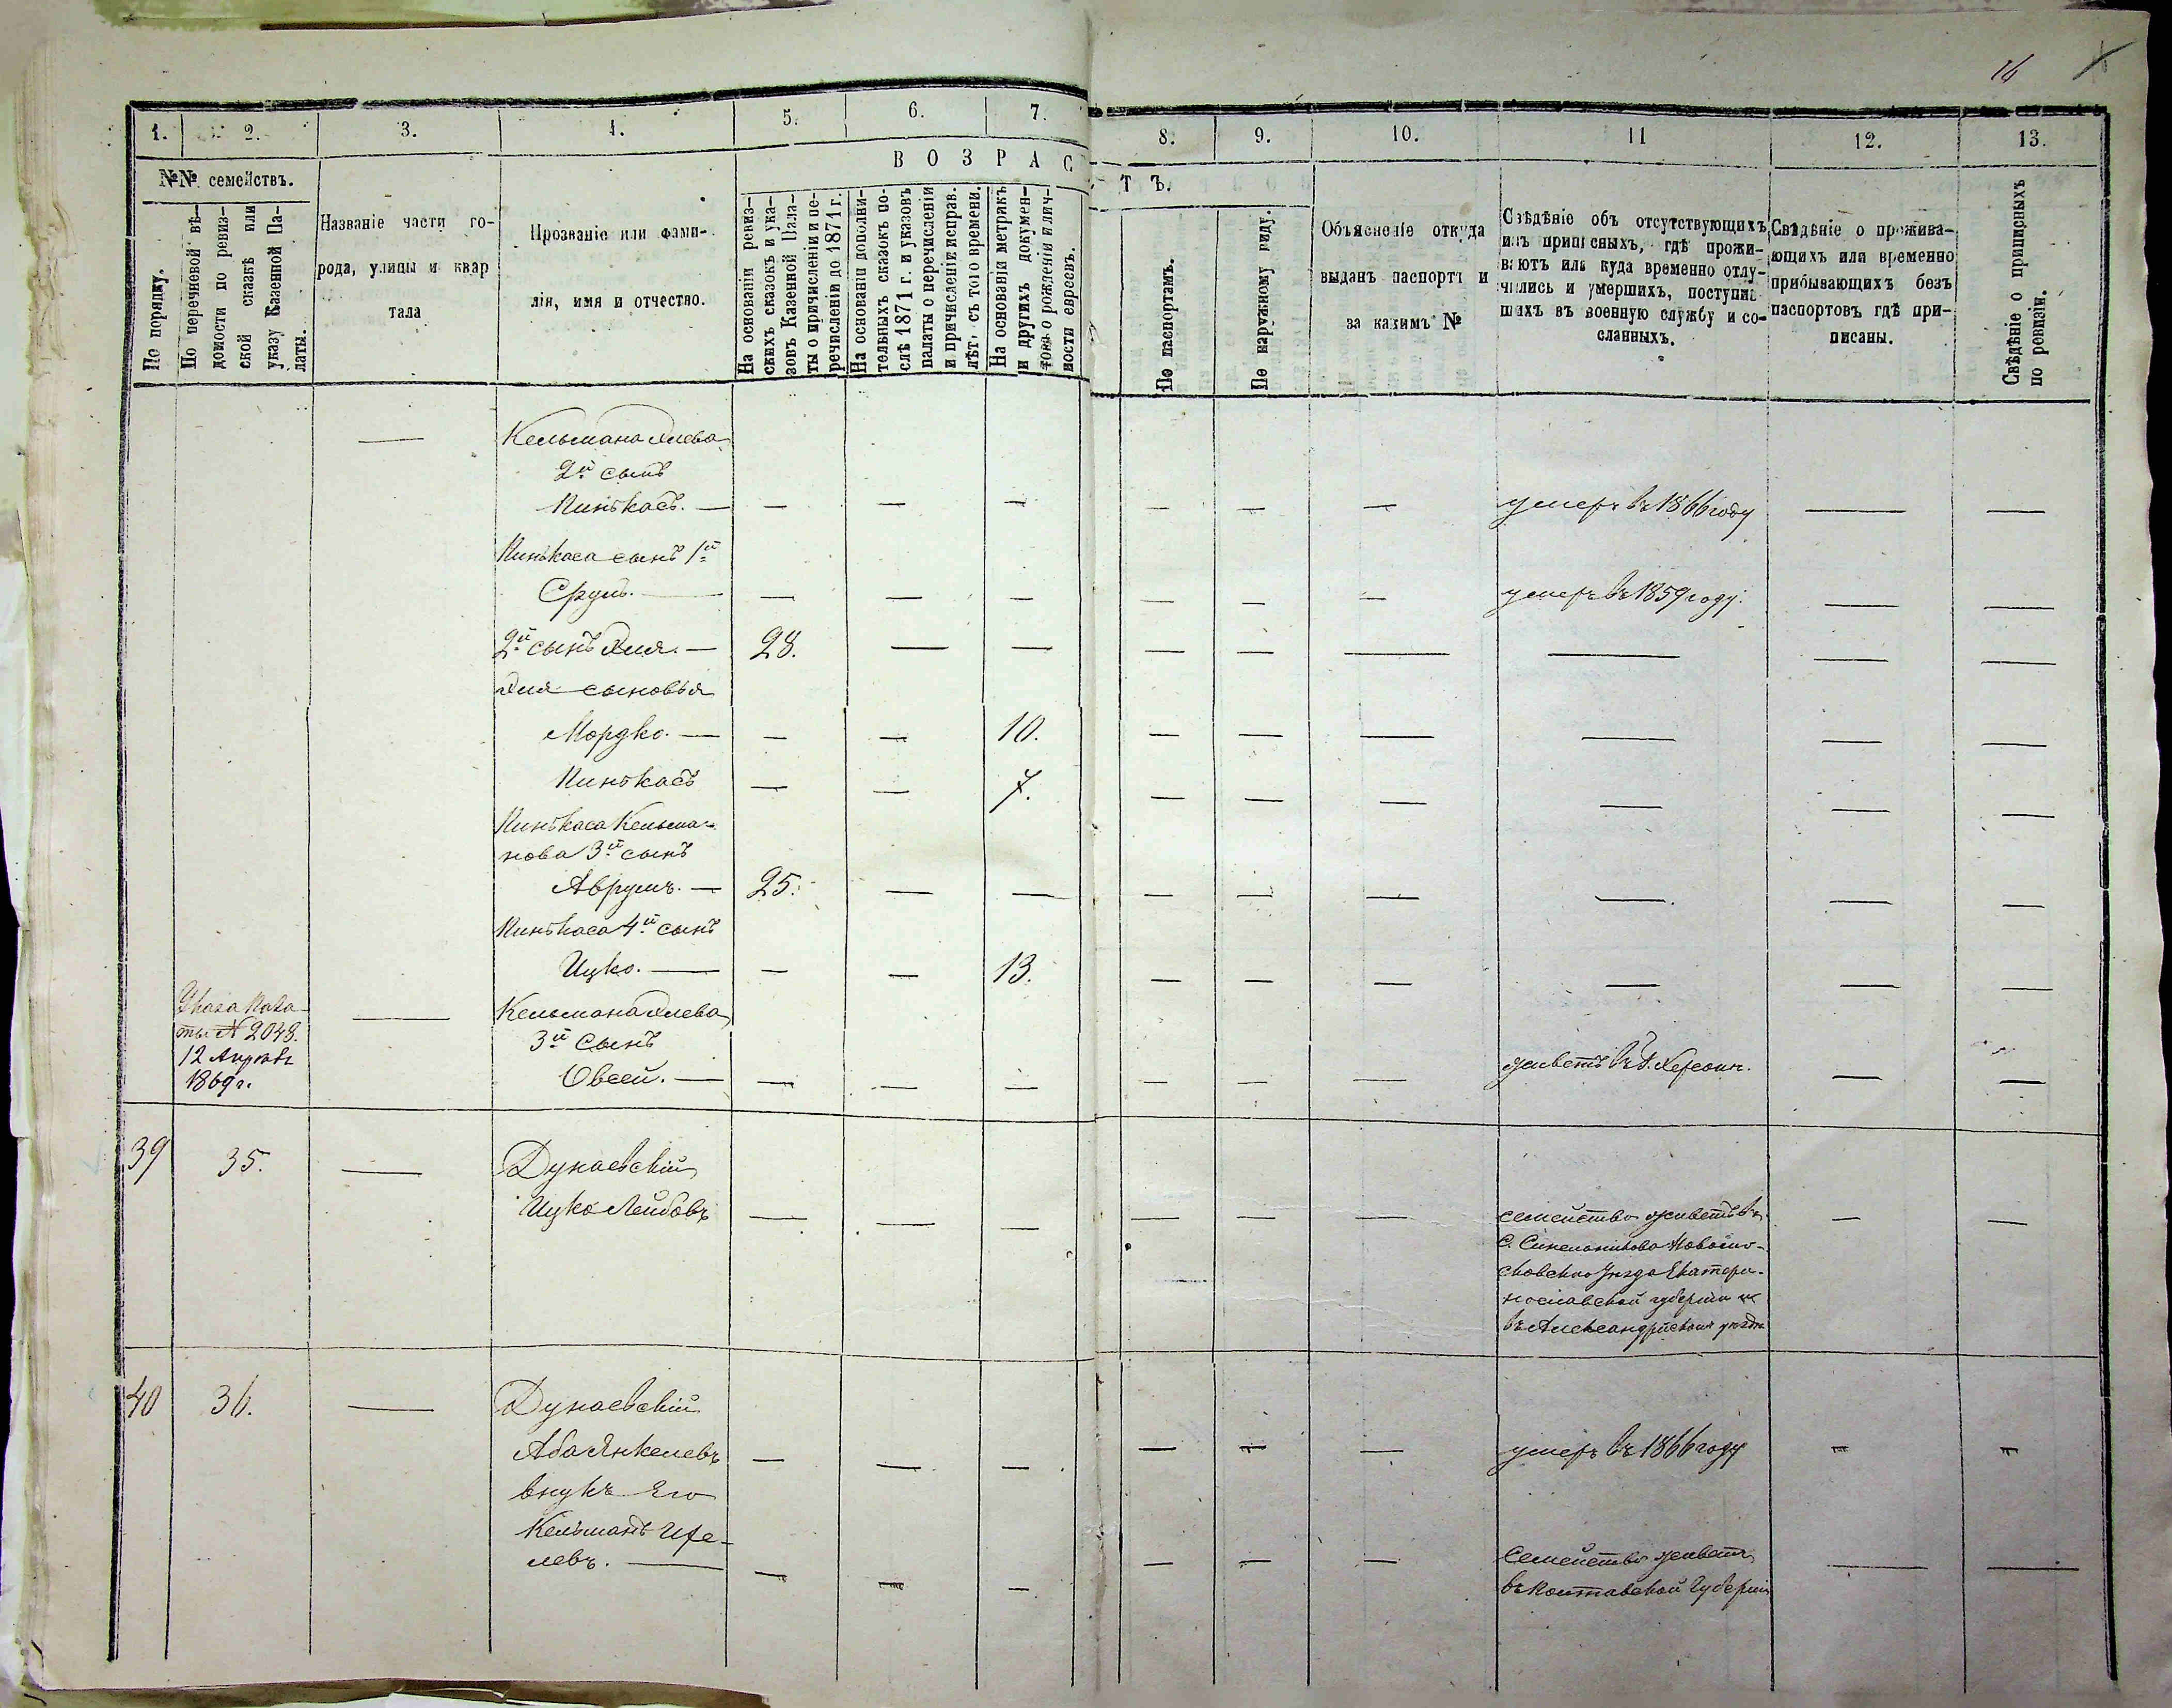 16
1. 2. 3. 4. 5. 6. 7. 8. 9. 10. 11 12. 13.
№№ семействъ.
По порядку.
По перечневой вѣ-
домости по ревиз-
ской сказкѣ или
указу Казенной Па-
латы.
Названіе части го-
рода, улицы и квар
тала
Прозваніе или фами-
лія, имя и отчество.
ВОЗРАСТЪ.
На основаніи ревиз-
скихъ сказокъ и ука-
зовъ Казенной Пала-
ты о причисленіи и пе-
речисленіи до 1871 г.
На основаніи дополни-
тельныхъ сказокъ по-
слѣ 1871 г. и указовъ
палаты о перечисленіи
и причисленіе исправ.
лѣт. съ того времени.
На основаніи метрикъ
и другихъ докумен-
товъ о рожденіи и лич-
ности евреевъ.
По паспортамъ.
По наружному виду.
Объясненіе откуда
выданъ паспортъ и
за какимъ №
Свѣдѣніе объ отсутствующихъ
изъ приписныхъ, гдѣ прожи-
ваютъ или куда временно отлу-
чились и умершихъ, поступив-
шихъ въ военную службу и со-
сланныхъ.
Свѣдѣніе о прожива-
ющихъ или временно
прибывающихъ безъ
паспортовъ гдѣ при-
писаны.
Свѣдѣніе о приписныхъ
по ревизіи.
— Кельмана Элева
2й сынъ
Пинькасъ. — — — — — — — умеръ въ 1866 году — —
Пинькаса сынъ 1й
Срулъ. — — — — — — — умеръ въ 1859 году. — —
2й сынъ Эля. — 28. — — — — — — — —
Эля сыновья
Мордко. — — — 10. — — — — — —
Пинькасъ — — 7. — — — — — —
Пинькаса Кельма-
нова 3й сынъ
Аврумъ. — 25. — — — — — — — —
Пинькаса 4й сынъ
Ицко. — — — 13. — — — — — —
Указа Пала-
ты № 2048.
12 Апрѣля
1869 г.
— Кельмана Элева
3й Сынъ
Овсей. — — — — — — — живетъ въ г. Херсон. — —
39 35. — Дунаевскій
Ицко Лейбовъ — — — — — — семейство живетъ въ — —
С. Синельникова Новомо-
сковскаго Уѣзда Екатери-
нославской губерніи и
въ Александрійскомъ уѣздѣ
40 36. — Дунаевскій
Аба Янкелевъ — — — — — — умеръ въ 1866 году — —
внукъ Его
Кельманъ Ире-
левъ. — — — — — — — Семейство живетъ — —
въ Полтавской Губерніи